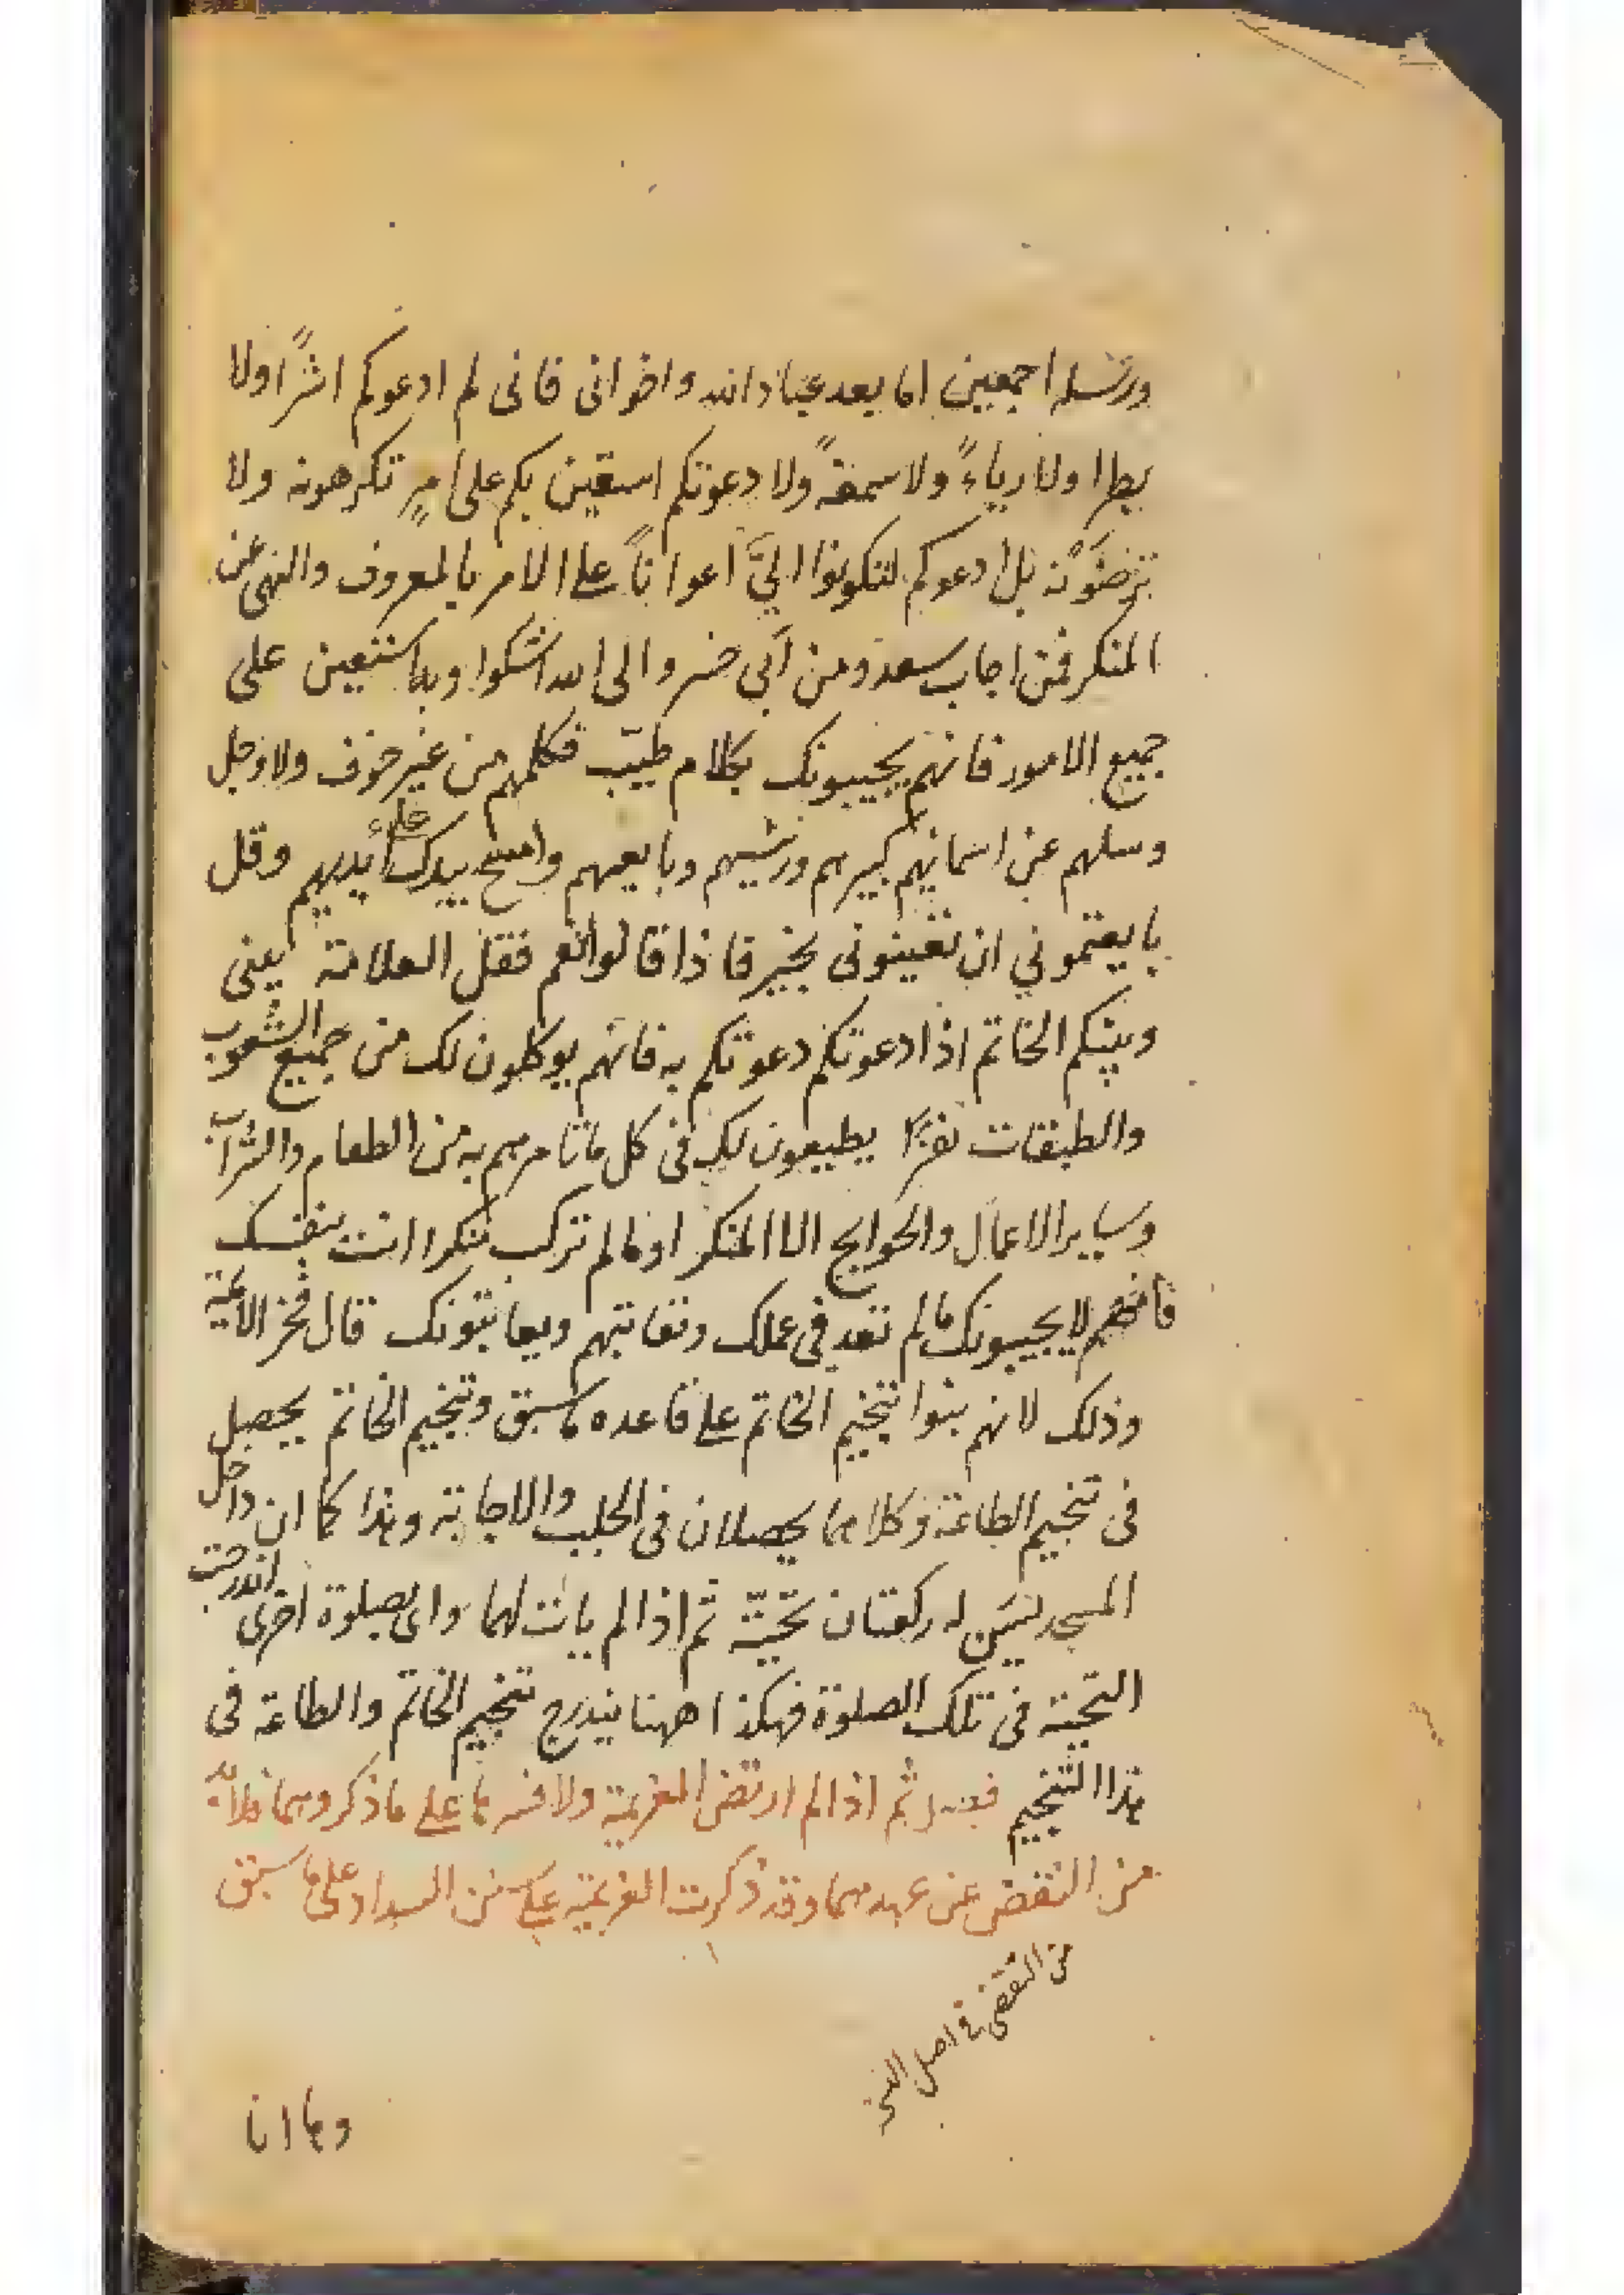 ورسله اجمعين اما بعد عباد الله واخوانى فانى لم ادعوكم اشرًا ولا
بطرا ولا رياءً ولا سمعةً ولا دعوتكم استعين بكم على امرٍ تكرهونه ولا
ترضَوْنه بل أدعوكم لتكونوا اليَّ اعواناً على الامر بالمعروف والنهى عن
المنكر فمن اجاب سعد ومن أبى خسر والى الله اشكوا وبه استعين على
جميع الامور فانهم يجيبونك بكلام طيّب فكلمهم من غير خوف ولا وجل
وسلهم عن اسمائهم كبيرهم ورئيسهم وبايعهم وامسح بيدك على أيديهم وقل
بايعتمونى ان تعينونى بخير فاذا قالوا نعم فقل العلامة بينى
وبينكم الخاتم اذا دعوتكم دعوتكم به فانهم يوكلون لك من جميع الشعوب
والطبقات نفرًا يطيعون لك فى كل ما تامرهم به من الطعام والشراب
وساير الاعمال والحوايج الا المنكر او مالم تركب منكرا انت بنفسك
فانهم لا يجيبونك مالم تعد فى عملك وتعاتبهم ويعاتبونك قال فخر الائمة
وذلك لانهم بنوا تنجيم الخاتم على قاعده ما سبق وتنجيم الخاتم يحصل
فى تنجيم الطاعة وكلاهما يحصلان فى الجلب والاجابة وهذا كما ان داخل
المسجد يسَن له ركعتان تحيّة ثم اذا لم يات لهما واتى بصلوة اخرى اندرجت
التحية فى تلك الصلوة فهكذا ههنا يندرج تنجيم الخاتم والطاعة فى
هذا التنجيم ثم اذا لم ارتض العزيمة ولا على ما ذكروهما فلا بدّ
من التفصى عن عهدهما وقد ذكرت العزيمة من السواد على ما سبق
من التفصى فى اصل
وها انا